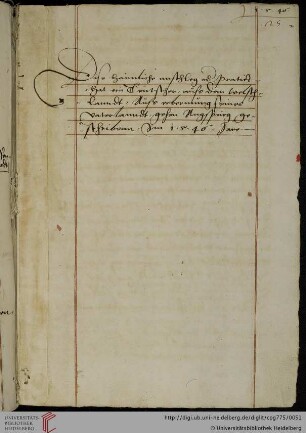 1 5 40
25
Dise haimliche anschleg vnd Practickh
hat ein Teutscher, aus dem welsch⸗
lanndt, Auss erbermung seines
vatterlanndt, gehen Augspurg ge⸗
schriben. Im 1 5 40 Jare
UNIVERSITÄTS-
BIBLIOTHEK
HEIDELBERG
http://digi.ub.uni-heidelberg.de/diglit/cpg775/0051
© Universitätsbibliothek Heidelberg